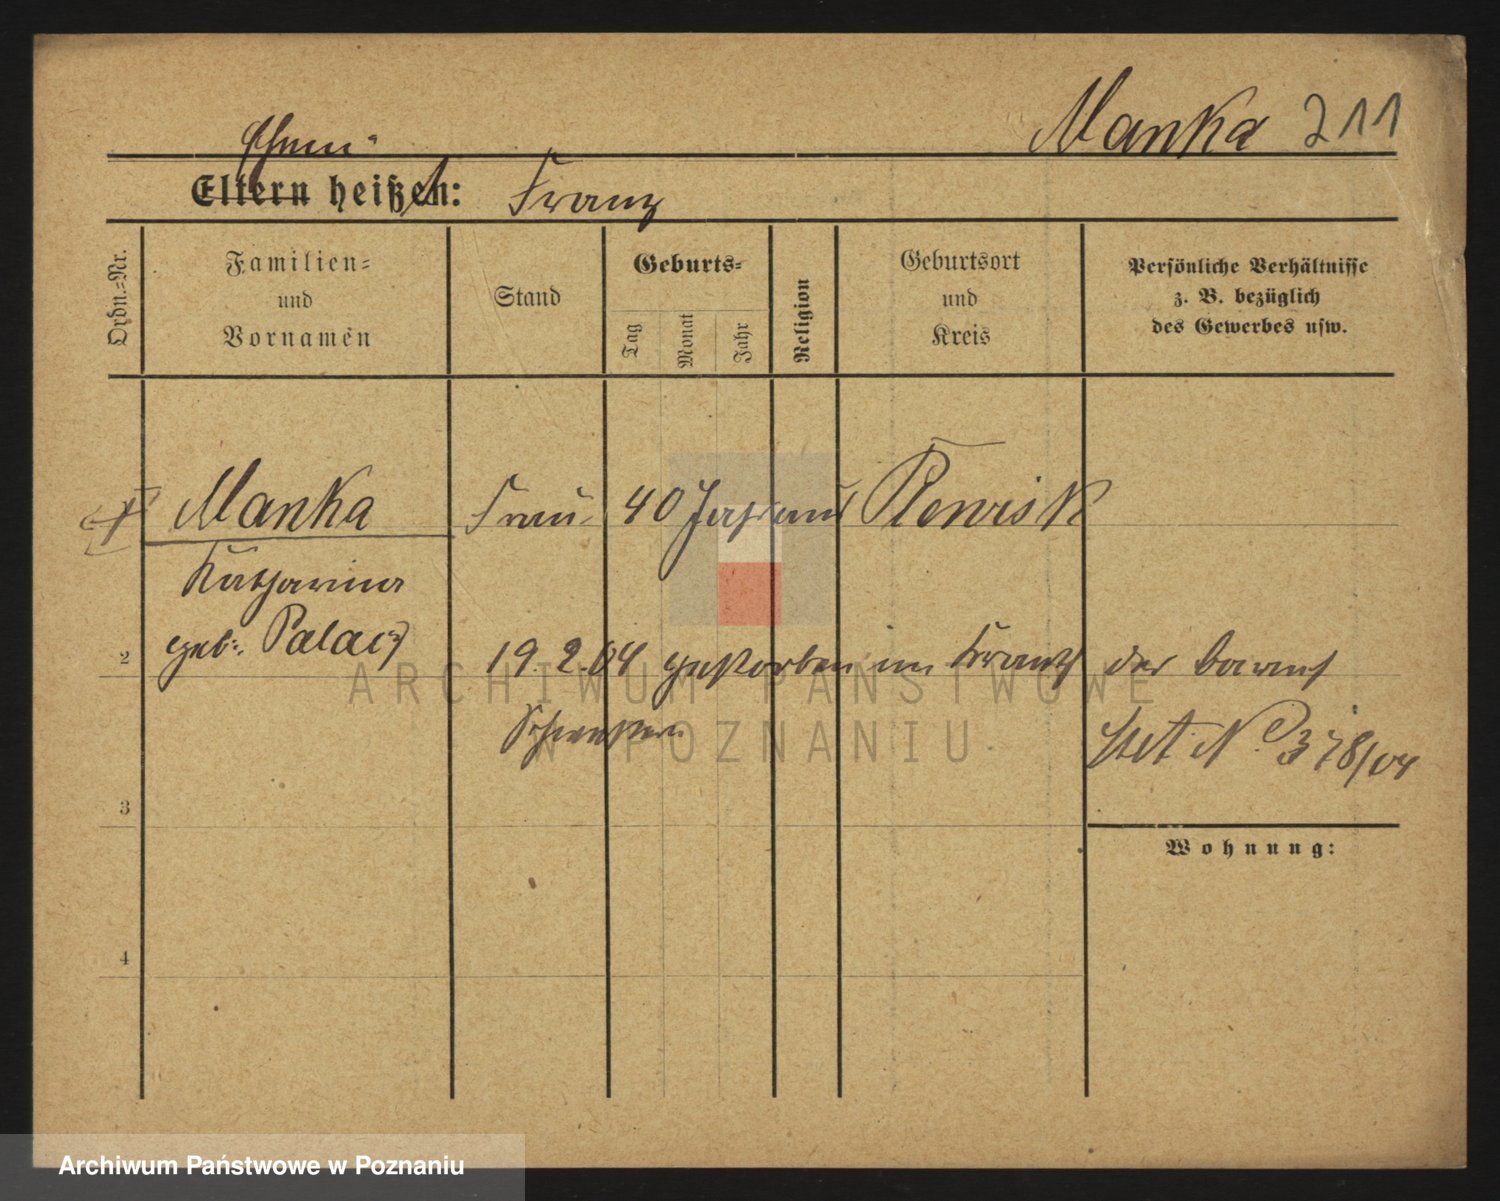 Manka 211
Ehem.
Eltern heißen: Franz
Ordn.-Nr.
Familien-
und
Vornamen
Stand
Geburts-
Tag
Monat
Jahr
Religion
Geburtsort
und
Kreis
Persönliche Verhältnisse
z. B. bezüglich
des Gewerbes usw.
Manka Frau 40 Jahr aus Plewisk
Katharina
geb. Palacz
2 19.2.04 gestorben im Krankh der barmh
Schwestern
Stet. No 378/04
3
Wohnung:
4
ARCHIWUM PAŃSTWOWE
W POZNANIU
Archiwum Państwowe w Poznaniu